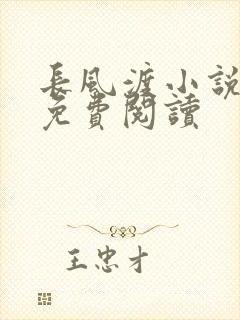 長風渡小說
免費閱讀
王忠才